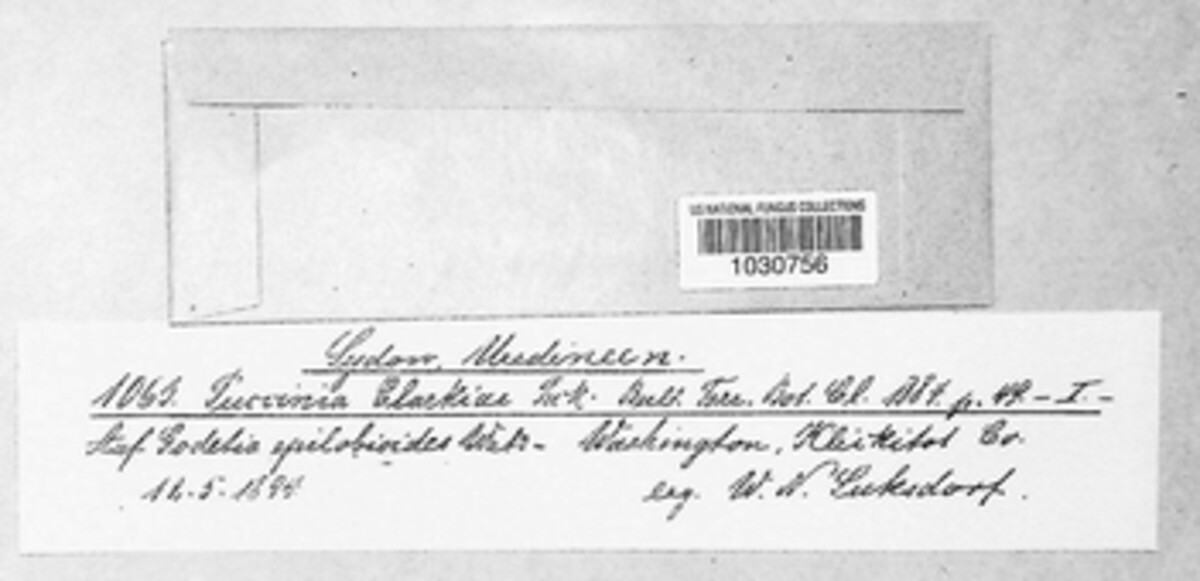 US NATIONAL FUNGUS COLLECTIONS
1030756
Sydow, Uredineen.
1063. Puccinia Clarkiae Pck. Bull. Torr. Bot. Cl. 1884. p. 49. - I. -
Auf Godetia epilobioides Wats - Washington, Klikitat Co.
12.-5.-1894 leg. W. N. Suksdorf.